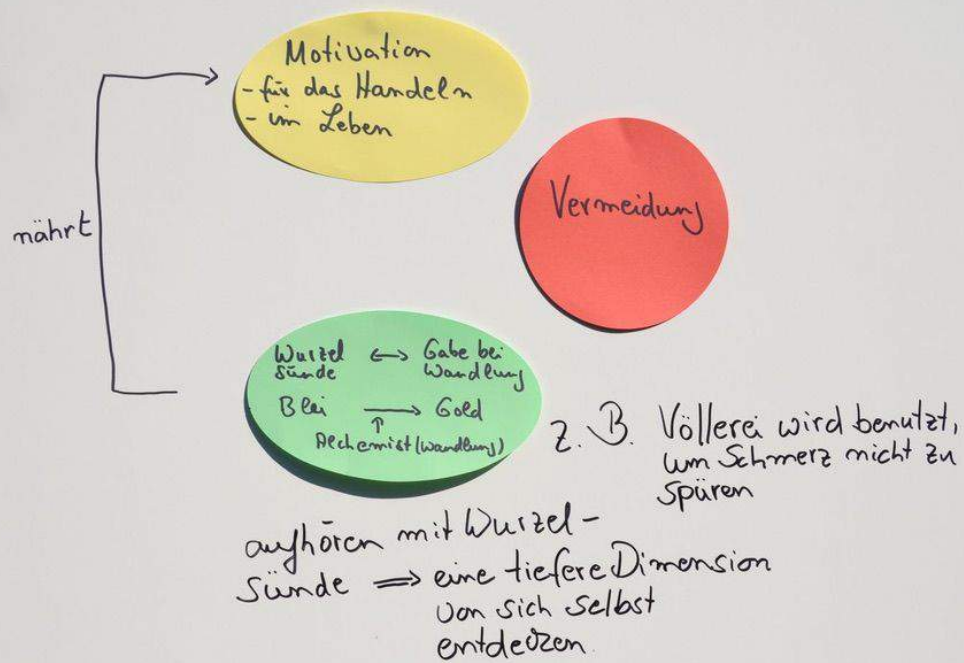 Motivation
- für das Handeln
- im Leben
nährt
Vermeidung
Wurzel ↔ Gabe bei
Sünde Wandlung
Blei → Gold
↑
Alchemist (Wandlung)
z. B. Völlerei wird benutzt,
um Schmerz nicht zu
spüren
aufhören mit Wurzel-
Sünde ⇒ eine tiefere Dimension
von sich selbst
entdecken.